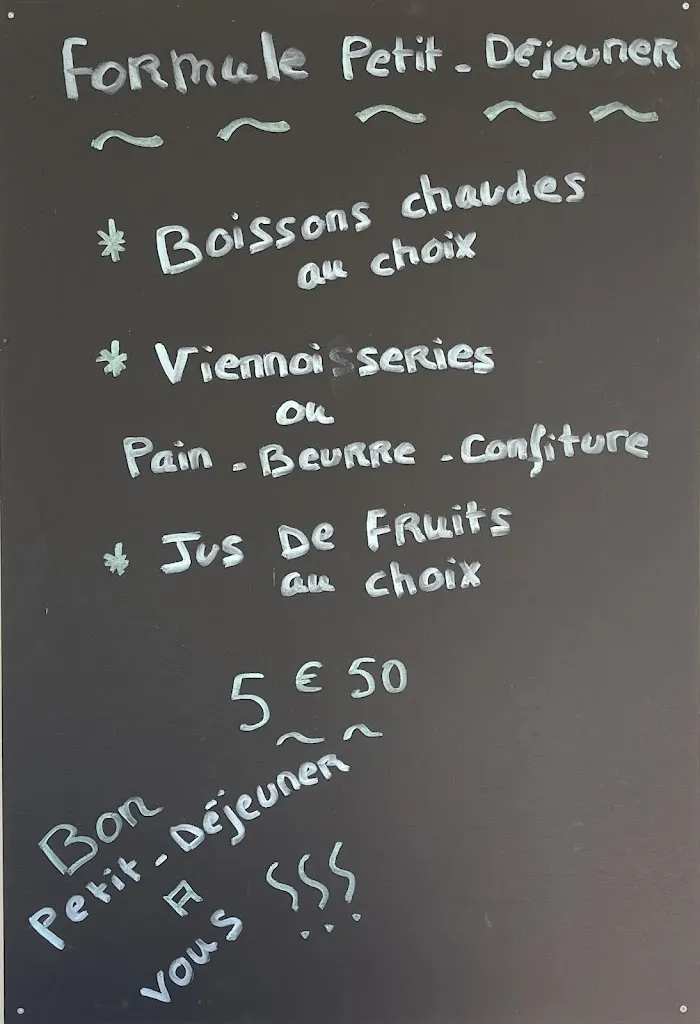 Formule Petit-Déjeuner
* Boissons chaudes
au choix
* Viennoisseries
ou
Pain - Beurre - Confiture
* Jus De Fruits
au choix
5 € 50
Bon
Petit-Déjeuner
A
vous !!!